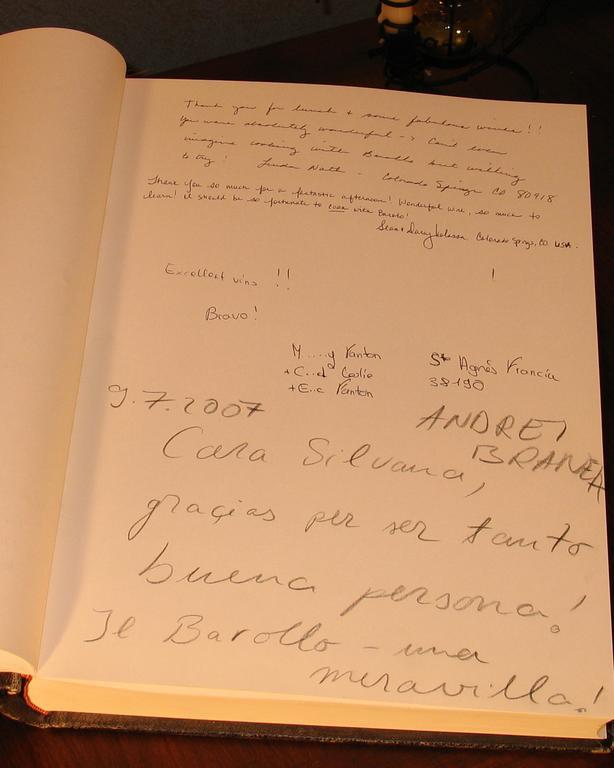 Thank you for lunch + some fabulous wines!!
You were absolutely wonderful -> Can't even
imagine cooking with Barollo but willing
to try! Linda Nath - Colorado Springs CO 80918
Thank you so much for a fantastic afternoon! Wonderful wine, so much to
learn! I should be so fortunate to cook with Barolo!
Sean + Colorado Springs, CO USA.
Excellent vins !! !
Bravo!
M.....y Vanton Ste Agnés Francia
+C...d 38190
+E..c Vanton
9.7.2007 ANDREJ
BRANEA
Cara Silvana,
graçias per ser tanto
buena persona!
Il Barollo - una
meravilla!